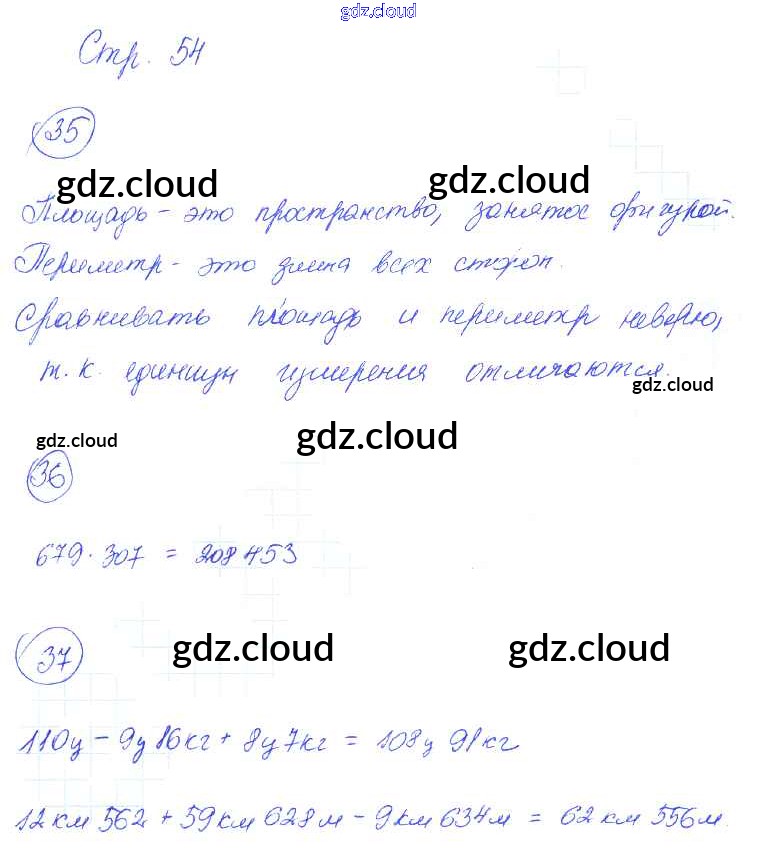 gdz.cloud
Стр. 54
35
gdz.cloud gdz.cloud
Площадь - это пространство, занятое фигурой.
Периметр - это длина всех сторон.
Сравнивать площадь и периметр неверно,
т.к. единицы измерения отличаются.
gdz.cloud
gdz.cloud gdz.cloud
36
679 · 307 = 208 453
37
gdz.cloud gdz.cloud
110ц - 9ц 16кг + 8ц 7кг = 108ц 91кг
12км 562 + 59км 628м - 9км 634м = 62км 556м.